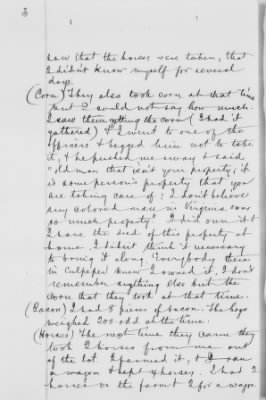 3
saw that the horses were taken, that
I didn't know myself for several
days.
(Corn) They also took corn at that time
but I could not say how much.
I saw them getting the corn (I had it
gathered) & I went to one of the
officers & begged him not to take
it, & he pushed me away & said
"old man that isn't your property, it
is some person's property that you
are taking care of: I don't believe
any colored man in Virginia owns
so much property" I did own it &
I have the deed of this property at
home. I didn't think it necessary
to bring it along. Everybody there
in Culpeper knew I owned it, I don't
remember anything else but the
corn that they took at that time.
(Bacon) I had 8 pieces of bacon. The hogs
weighed 200 odd at the time.
(Horses) The next time they came they
took 2 horses from me out
of the lot. I farmed it, & I ran
a wagon & kept 4 horses. I had 2
horses on the farm & 2 for a wagon.